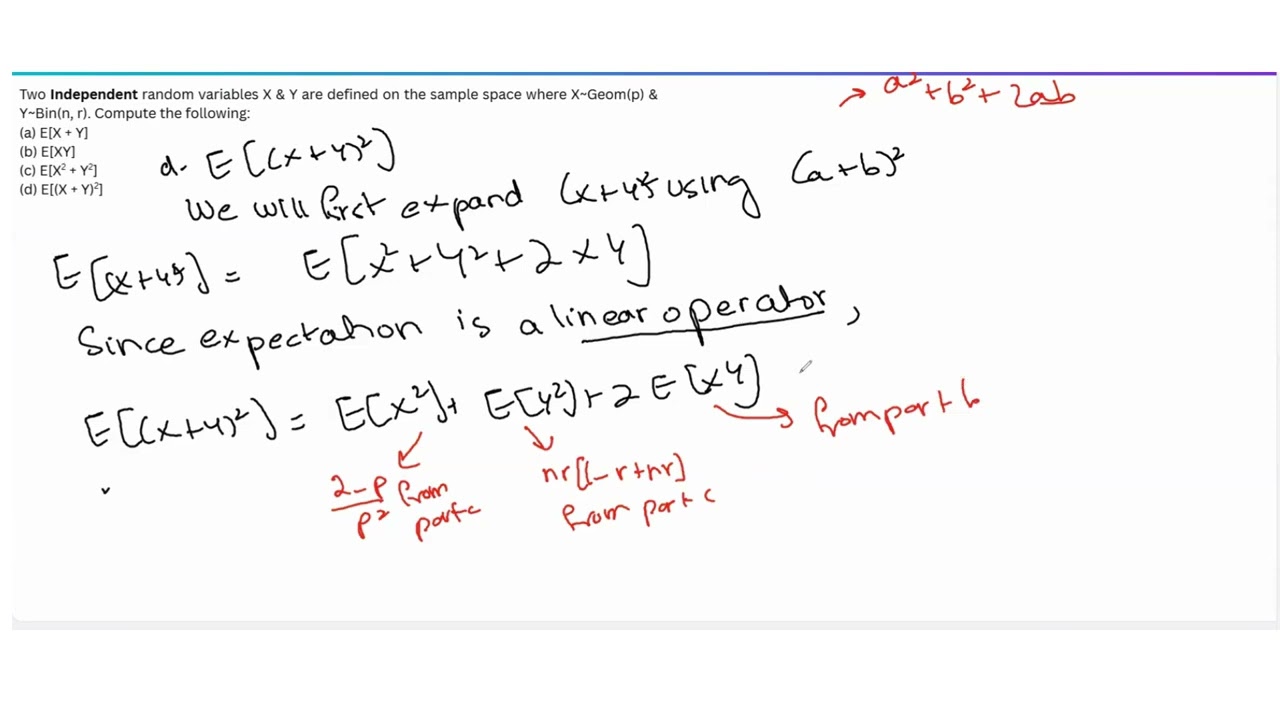 Two Independent random variables X & Y are defined on the sample space where X~Geom(p) &
Y~Bin(n, r). Compute the following:
(a) E[X + Y]
(b) E[XY]
(c) E[X² + Y²]
(d) E[(X + Y)²]
→ a² + b² + 2ab
d. E[(X+Y)²]
We will first expand (X+Y)² using (a+b)²
E[(X+Y)²] = E[X² + Y² + 2XY]
Since expectation is a linear operator,
E[(X+Y)²] = E[X²] + E[Y²] + 2E[XY]
from part b
2-p/p² from part c
nr[1-r+nr]
from part c